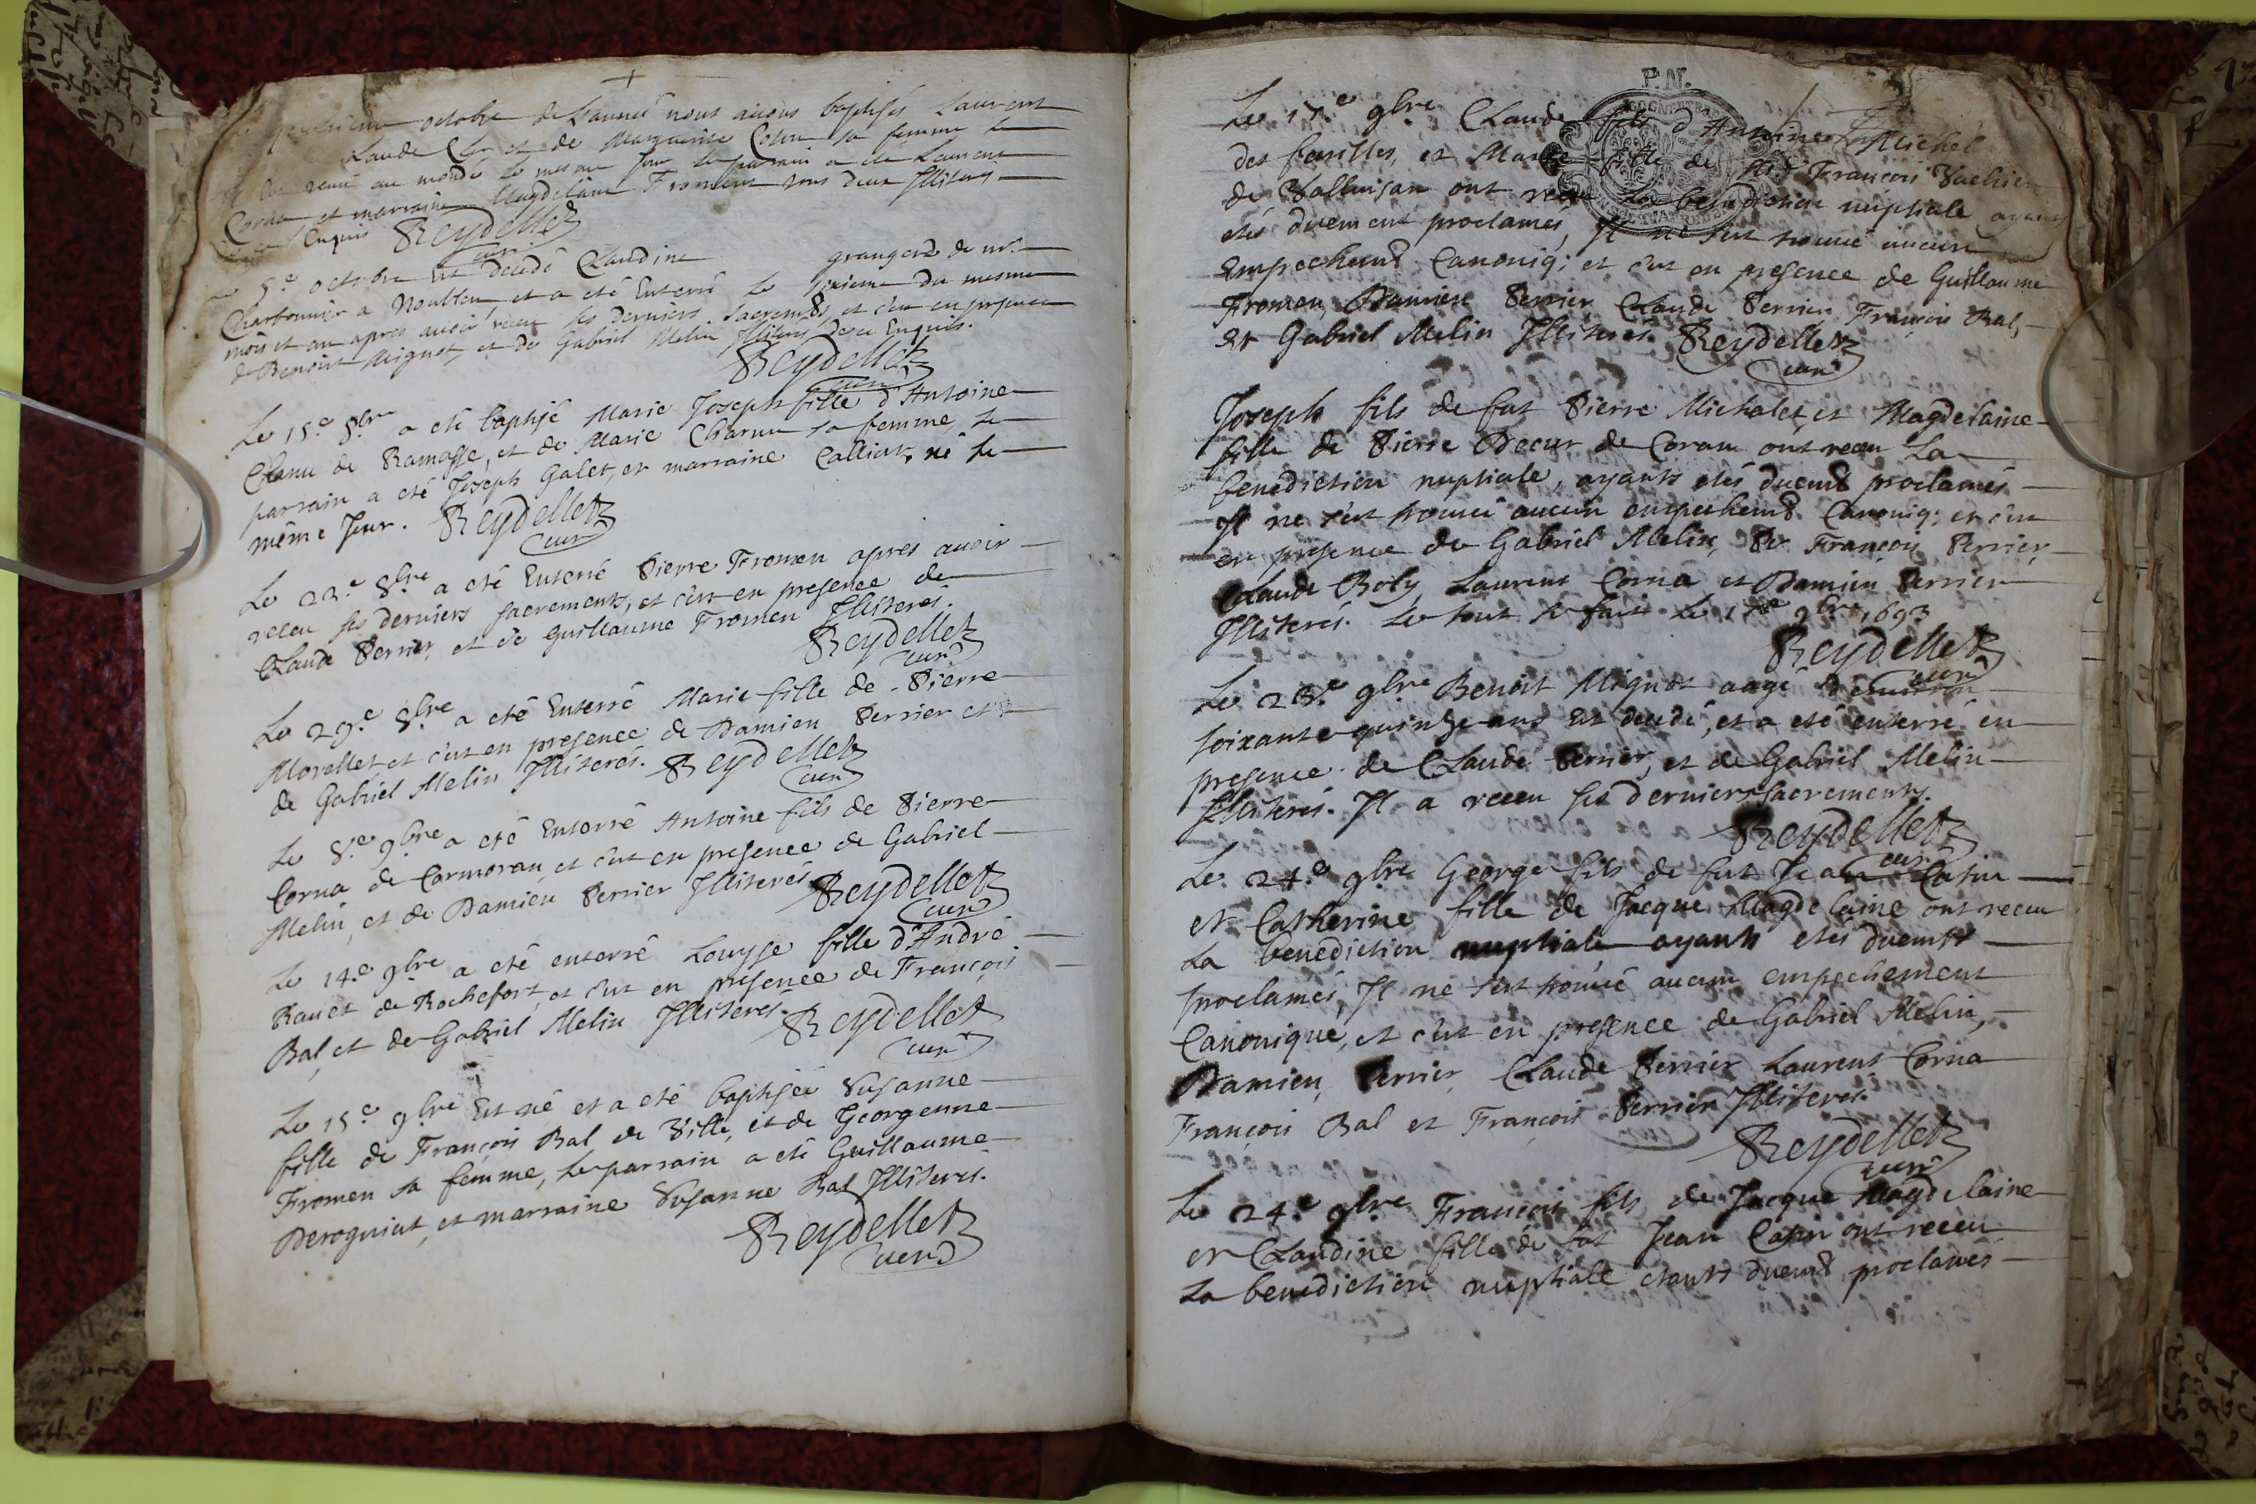 octobre de L'année nous avons baptisés Laurent
Claude et de Marguerite sa femme Le
venu au monde Le mesme Jour Le parrain a eté Laurent
Corna et marraine Magdelaine Froment tous deux Illiterés
Enquis Reydellet
curé
5.e octobre Est decedé Claudine grangere de mr.
Charbonnier a Noublen et a eté Enterré Le sixieme du mesme
mois et an apres avoir receu ses derniers Sacremts, et c'est en presence
de Benoist Mignot, et de Gabriel Melin Illiterés de ce Enquis.
Reydellet
curé
Le 15.e 8bre a eté baptisé Marie Joseph fille d'Antoine
Chanu de Ramasse, et de Marie Charnu sa femme Le
parrain a eté Joseph Galet, et marraine Calliat, né Le
même Jour. Reydellet
curé
Le 23.e 8bre a eté Enterré Pierre Fromen apres avoir
receu ses derniers sacrements, et c'est en presence de
Claude Perrier, et de Guillaume Fromen Illiterés.
Reydellet
curé
Le 29.e 8bre a eté Enterré Marie fille de Pierre
Morellet et c'est en presence de Damien Perrier et
de Gabriel Melin Illiterés. Reydellet
curé
Le 8.e 9bre a eté Enterré Antoine fils de Pierre
Corna de Cormoran, et c'est en presence de Gabriel
Melin, et de Damien Perrier Illiterés Reydellet
curé
Le 14.e 9bre a eté enterré Louyse fille d'André
Ravet de Rochefort, et c'est en presence de François
Bal, et de Gabriel Melin Illiterés. Reydellet
curé
Le 15.e 9bre Est né et a eté baptisée Susanne
fille de François Bal de Ville, et de Georgenne
Fromen sa femme, Le parrain a eté Guillaume
Derogniat, et marraine Susanne Bal Illiterés.
Reydellet
curé
P.N.
Le 17.e 9bre Claude fils d'Antoine Michel
des fasilles, et Marie fille de François Vachier
de Valluisan ont receu La benediction nuptiale ayants
etés duement proclamés, Il ne s'est trouvé aucun
Empechemt Canoniq; et c'est en presence de Guillaume
Fromen, Damien Perrier Claude Perrier François Bal,
et Gabriel Melin Illiterés. Reydellet
curé
Joseph fils de fut Pierre Michalet, et Magdelaine
fille de Pierre Decur de Coran ont receu La
benediction nuptiale, ayants etés duemt proclamés
Il ne s'est trouvé aucun empechemt Canoniq; et c'est
en presence de Gabriel Melin, De François Perrier
Claude Boly, Laurent Corna et Damien Perrier
Illiterés. Le tout se fait Le 17.e 9bre 1693
Reydellet
curé
Le 23.e 9bre Benoist Mignot aagé d'environ
soixante quinze ans Est decedé, et a eté enterré en
presence de Claude Perrier, et de Gabriel Melin
Illiterés. Il a receu ses derniers sacrements.
Reydellet
curé
Le 24.e 9bre George fils de fut Jean Catin
et Catherine fille de Jacque Magdelaine ont receu
La benediction nuptiale ayants etés duemt
proclamés, Il ne s'est trouvé aucun empechement
Canonique, et c'est en presence de Gabriel Melin,
Damien Perrier, Claude Perrier Laurent Corna
François Bal et François Perrier Illiterés.
Reydellet
curé
Le 24.e 9bre François fils de Jacque Magdelaine
et Claudine fille de fut Jean Catin ont receu
La benediction nuptiale etants duemt proclamés